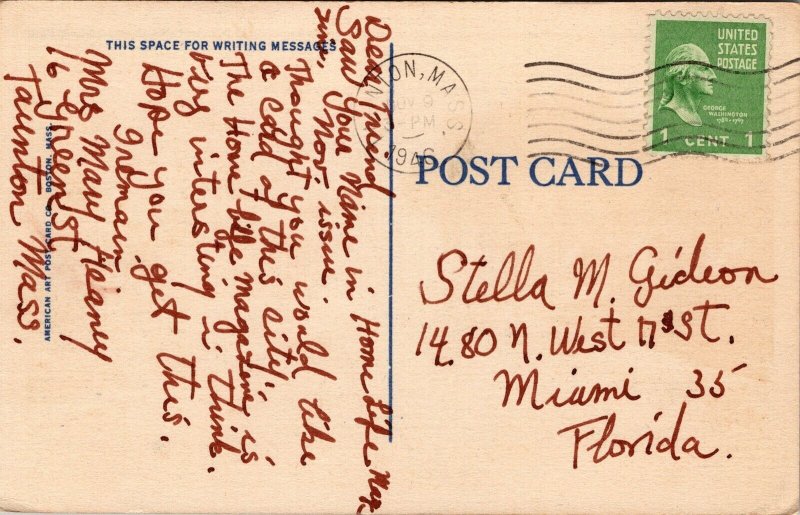 THIS SPACE FOR WRITING MESSAGES
Dear Friend
Saw your Name in Home Life Mag-
zine, Nov. issue.
Thought you would like
a card of this city.
The Home Life magazine is
very intersting i think.
Hope you get this.
I remain
Mrs Mary Heaney
16 Green St
Taunton Mass.
AMERICAN ART POST CARD CO. BOSTON, MASS.
NTON, MASS.
NOV 9
PM
1946
UNITED
STATES
POSTAGE
GEORGE
WASHINGTON
1789-1797
1 CENT 1
POST CARD
Stella M. Gideon
1480 N. West 17 St.
Miami 35
Florida.